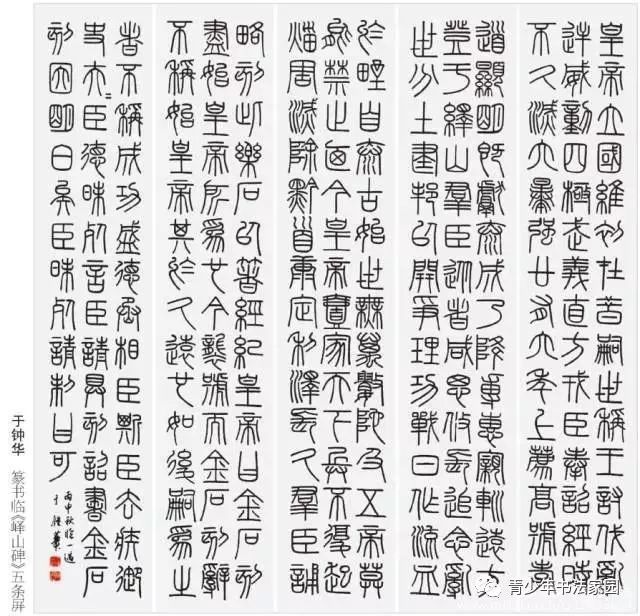 皇帝立國維初在昔嗣世稱王討伐亂
逆威動四極武義直方戎臣奉詔經時
不久滅六暴強廿有六年上薦高號孝
道顯明既獻泰成乃降尃惠親巡遠方
登于繹山羣臣從者咸思攸長追念亂
世分土建邦以開爭理功戰日作流血
於野自泰古始世無萬數陀及五帝莫
能禁止迺今皇帝壹家天下兵不復起
災害滅除黔首康定利澤長久羣臣誦
略刻此樂石以著經紀皇帝曰金石刻
盡始皇帝所為也今襲號而金石刻辭
不稱始皇帝其於久遠也如後嗣為之
者不稱成功盛德丞相臣斯臣去疾御
史夫=臣德昧死言臣請具刻詔書金石
刻因明白矣臣昧死請制曰可
丙申秋臨一過
于鍾華
于钟华 篆书临《峄山碑》五条屏
青少年书法家园